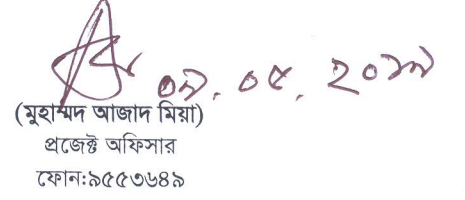 ০৯.০৫.২০১৭
(মুহাম্মদ আজাদ মিয়া)
প্রজেক্ট অফিসার
ফোন:৯৫৫৩৬৪৯